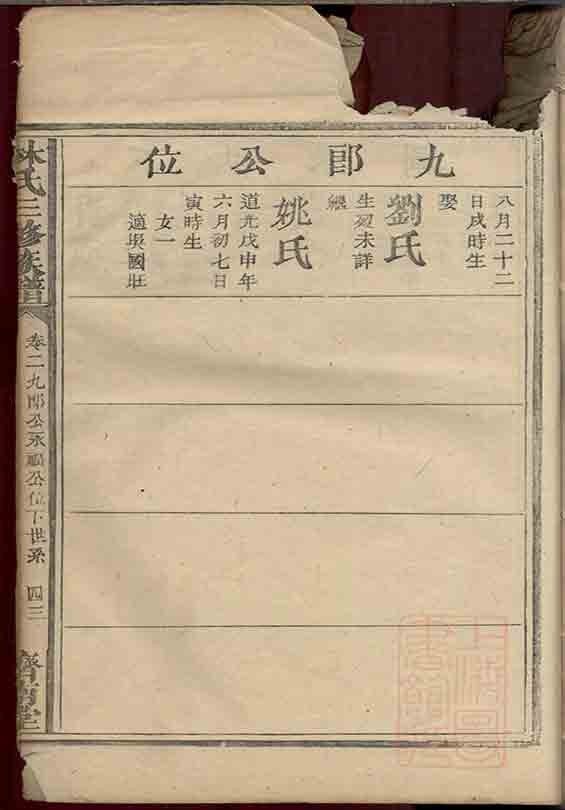 九郎公位
八月二十二
日戌時生
娶
劉氏
生歿未詳
繼
姚氏
道光戊申年
六月初七日
寅時生
女一
適
林氏三修族譜
卷二九郎公永順公位下世系 四三